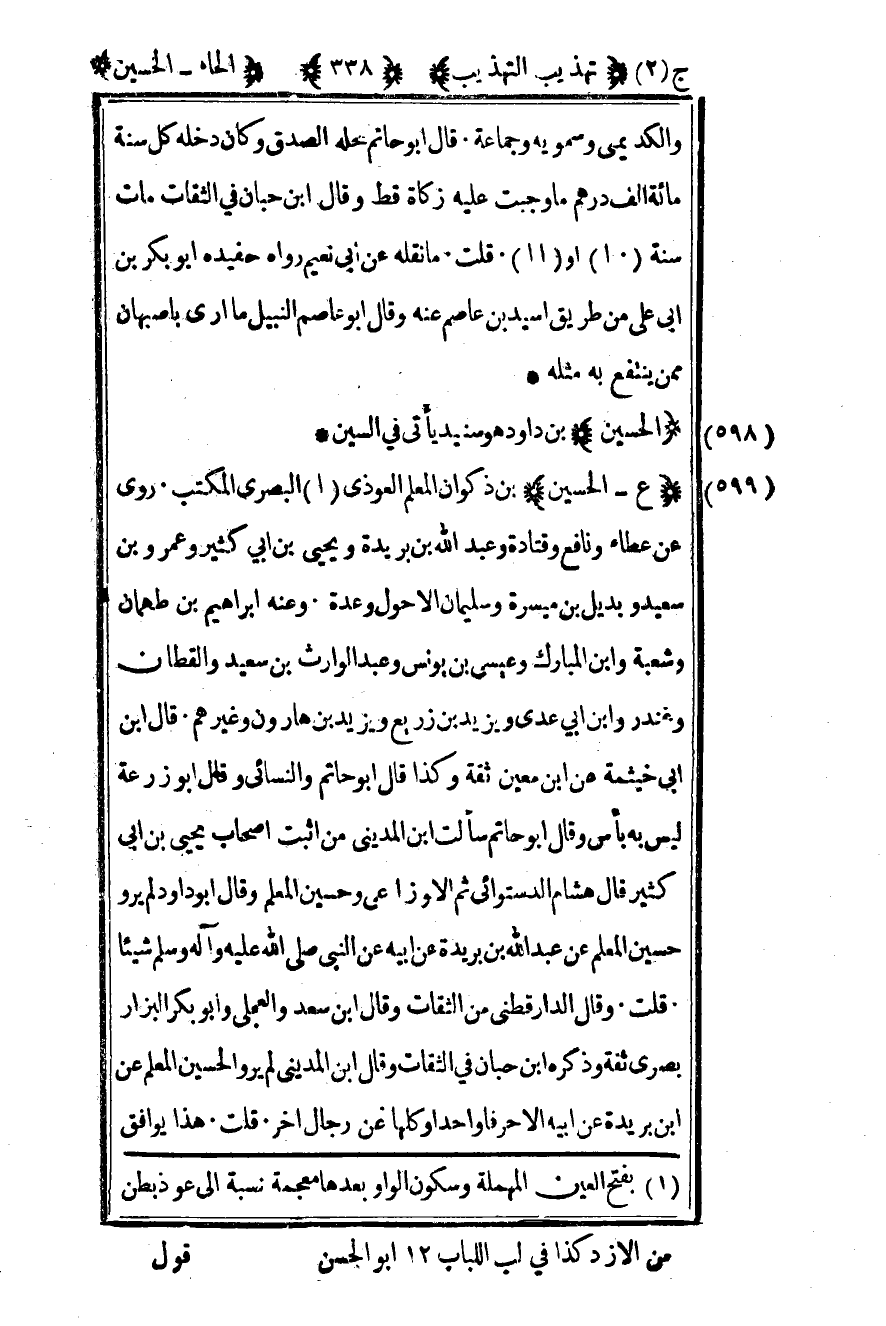 ج (٢) ﴿ تهذيب التهذيب ﴾ ﴿ ٣٣٨ ﴾ ﴿ الحاء ـ الحسين ﴾
والكديمى وسمويه وجماعة · قال ابو حاتم محله الصدق وكان دخله كل سنة
مائة الف درهم ما وجبت عليه زكاة قط وقال ابن حبان في الثقات مات
سنة (١٠) او (١١) · قلت · ما نقله عن ابى نعيم رواه حفيده ابو بكر بن
ابي على من طريق اسيد بن عاصم عنه وقال ابو عاصم النبيل ما ارى باصبهان
ممن ينتفع به مثله *
(٥٩٨) ﴿ الحسين ﴾ بن داود هو سنيد يأتى في السين *
(٥٩٩) ﴿ ع ـ الحسين ﴾ بن ذكوان المعلم العوذى (١) البصرى المكتب · روى
عن عطاء ونافع وقتادة وعبد الله بن بريدة و يحيى بن ابي كثير وعمرو بن
سعيد و بديل بن ميسرة وسليمان الاحول وعدة · وعنه ابراهيم بن طهمان
وشعبة وابن المبارك وعيسي بن يونس وعبد الوارث بن سعيد والقطان
وغندر وابن ابي عدى ويزيد بن زريع ويزيد بن هارون وغيرهم · قال ابن
ابى خيثمة عن ابن معين ثقة وكذا قال ابو حاتم والنسائى و قال ابو زرعة
ليس به بأس وقال ابو حاتم سألت ابن المدينى من اثبت اصحاب يحيى بن ابى
كثير قال هشام الدستوائى ثم الاوزاعى وحسين المعلم وقال ابو داود لم يرو
حسين المعلم عن عبد الله بن بريدة عن ابيه عن النبى صلى الله عليه وآله وسلم شيئا
· قلت · وقال الدارقطنى من الثقات وقال ابن سعد والعجلى وابو بكر البزار
بصرى ثقة وذكره ابن حبان في الثقات وقال ابن المدينى لم يرو الحسين المعلم عن
ابن بريدة عن ابيه الا حرفا واحدا وكلها عن رجال اخر · قلت · هذا يوافق
(١) بفتح العين المهملة وسكون الواو بعدها معجمة نسبة الى عوذ بطن
من الازد كذا في لب اللباب ١٢ ابو الحسن قول